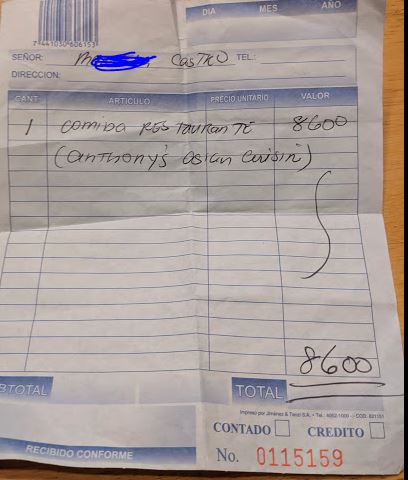 7 441030 606153
DIA MES AÑO
SEÑOR: CASTRO TEL:
DIRECCION:
CANT. ARTICULO PRECIO UNITARIO VALOR
1 comida RESTAURANTE 8600
(anthony's asian cuisin)
8600
BTOTAL TOTAL
Impreso por Jiménez & Tanzi S.A. • Tel.: 4062-1000 • COD. 821151
CONTADO CREDITO
RECIBIDO CONFORME No. 0115159